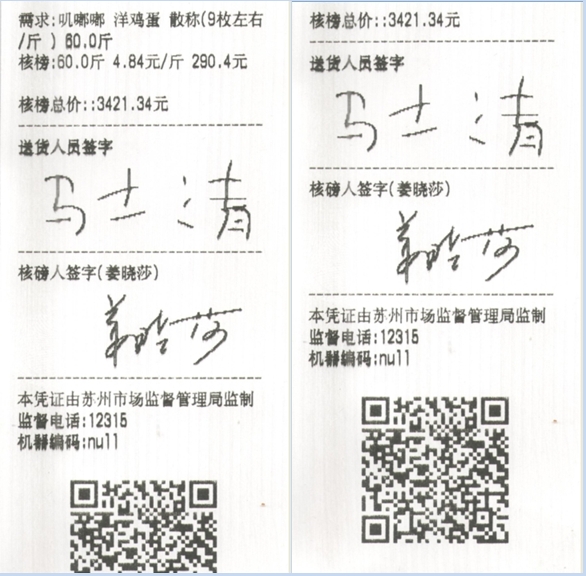 需求:叽嘟嘟 洋鸡蛋 散称(9枚左右
/斤 ) 60.0斤
核榜:60.0斤 4.84元/斤 290.4元
核榜总价::3421.34元
送货人员签字
马士清
核磅人签字(姜晓莎)
姜晓莎
本凭证由苏州市场监督管理局监制
监督电话:12315
机器编码:null
核榜总价::3421.34元
送货人员签字
马士清
核磅人签字(姜晓莎)
姜晓莎
本凭证由苏州市场监督管理局监制
监督电话:12315
机器编码:null